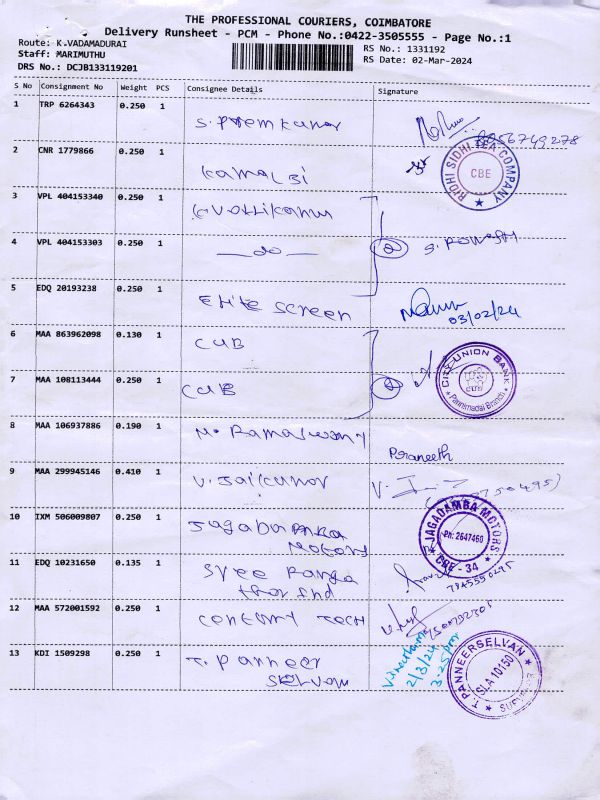 THE PROFESSIONAL COURIERS, COIMBATORE
Delivery Runsheet - PCM - Phone No.:0422-3505555 - Page No.:1
Route: K.VADAMADURAI
RS No.: 1331192
Staff: MARIMUTHU
RS Date: 02-Mar-2024
DRS No.: DCJB133119201
S No Consignment No Weight PCS Consignee Details Signature
1 TRP 6264343 0.250 1
S. Premkumar
2 CNR 1779866 0.250 1
RIDHI SIDHI TEA COMPANY
CBE
3 VPL 404153340 0.250 1
4 VPL 404153303 0.250 1
— do —
5 EDQ 20193238 0.250 1
Elite Screen
03/02/24
6 MAA 863962098 0.130 1
CUB
CITY UNION BANK
Pannimadai Branch
7 MAA 108113444 0.250 1
CUB
8 MAA 106937886 0.190 1
M. Ramaswamy
Praneeth
9 MAA 299945146 0.410 1
V. Jaikumar
10 IXM 506009807 0.250 1
Jagadamba
Motors
JAGADAMBA MOTORS
Ph: 2647460
CBE - 34
11 EDQ 10231650 0.135 1
Sree Ranga
12 MAA 572001592 0.250 1
Century Tech
13 KDI 1509298 0.250 1
T. Panneer
Selvam
2/3/24
3-25pm
T. PANNEERSELVAN
SLA 10150